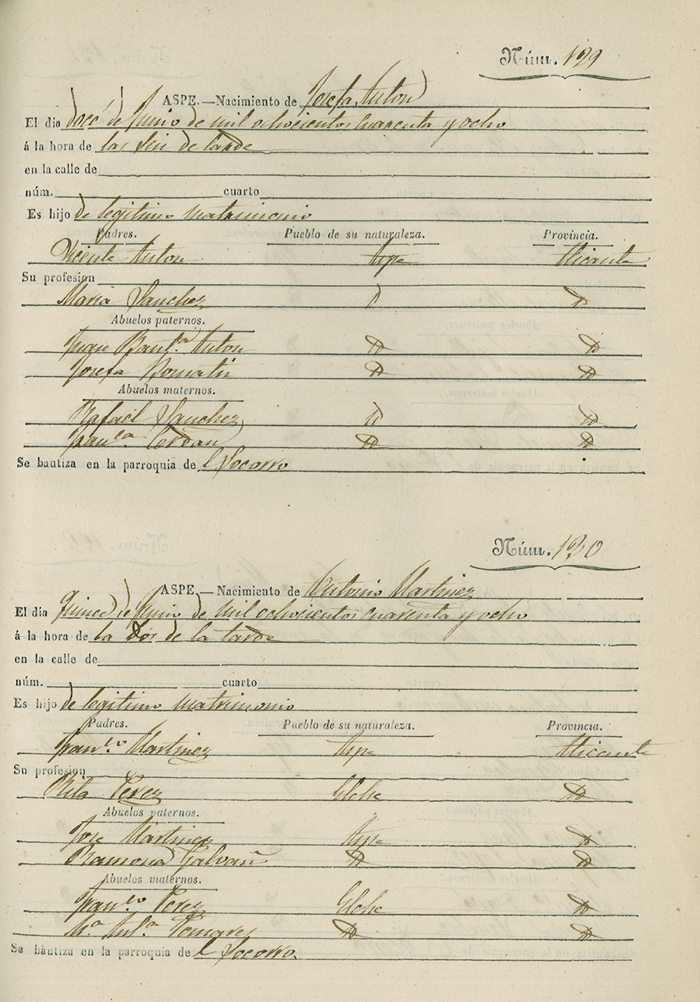 Núm. 129
ASPE.—Nacimiento de Josefa Anton
El dia doce de Junio de mil ochocientos cuarenta y ocho
á la hora de las seis de tarde
en la calle de
núm. cuarto
Es hijo de legitimo matrimonio
Padres. Pueblo de su naturaleza. Provincia.
Vicente Anton Aspe Alicante
Su profesion
Maria Sanchez D D
Abuelos paternos.
Juan Baut.ta Anton D D
Josefa D D
Abuelos maternos.
Rafael Sanchez D D
Fran.ca Cerdan D D
Se bautiza en la parroquia de el Socorro
Núm. 130
ASPE.—Nacimiento de Antonio Martinez
El dia de Junio de mil ochocientos cuarenta y ocho
á la hora de la dos de la tarde
en la calle de
núm. cuarto
Es hijo de legitimo matrimonio
Padres. Pueblo de su naturaleza. Provincia.
Fran.co Martinez Aspe Alicante
Su profesion
Rita Perez Elche D
Abuelos paternos.
Jose Martinez Aspe D
Ramona Galvañ D D
Abuelos maternos.
Fran.co Perez Elche D
M.a Ant.a Pomares D D
Se bautiza en la parroquia de el Socorro